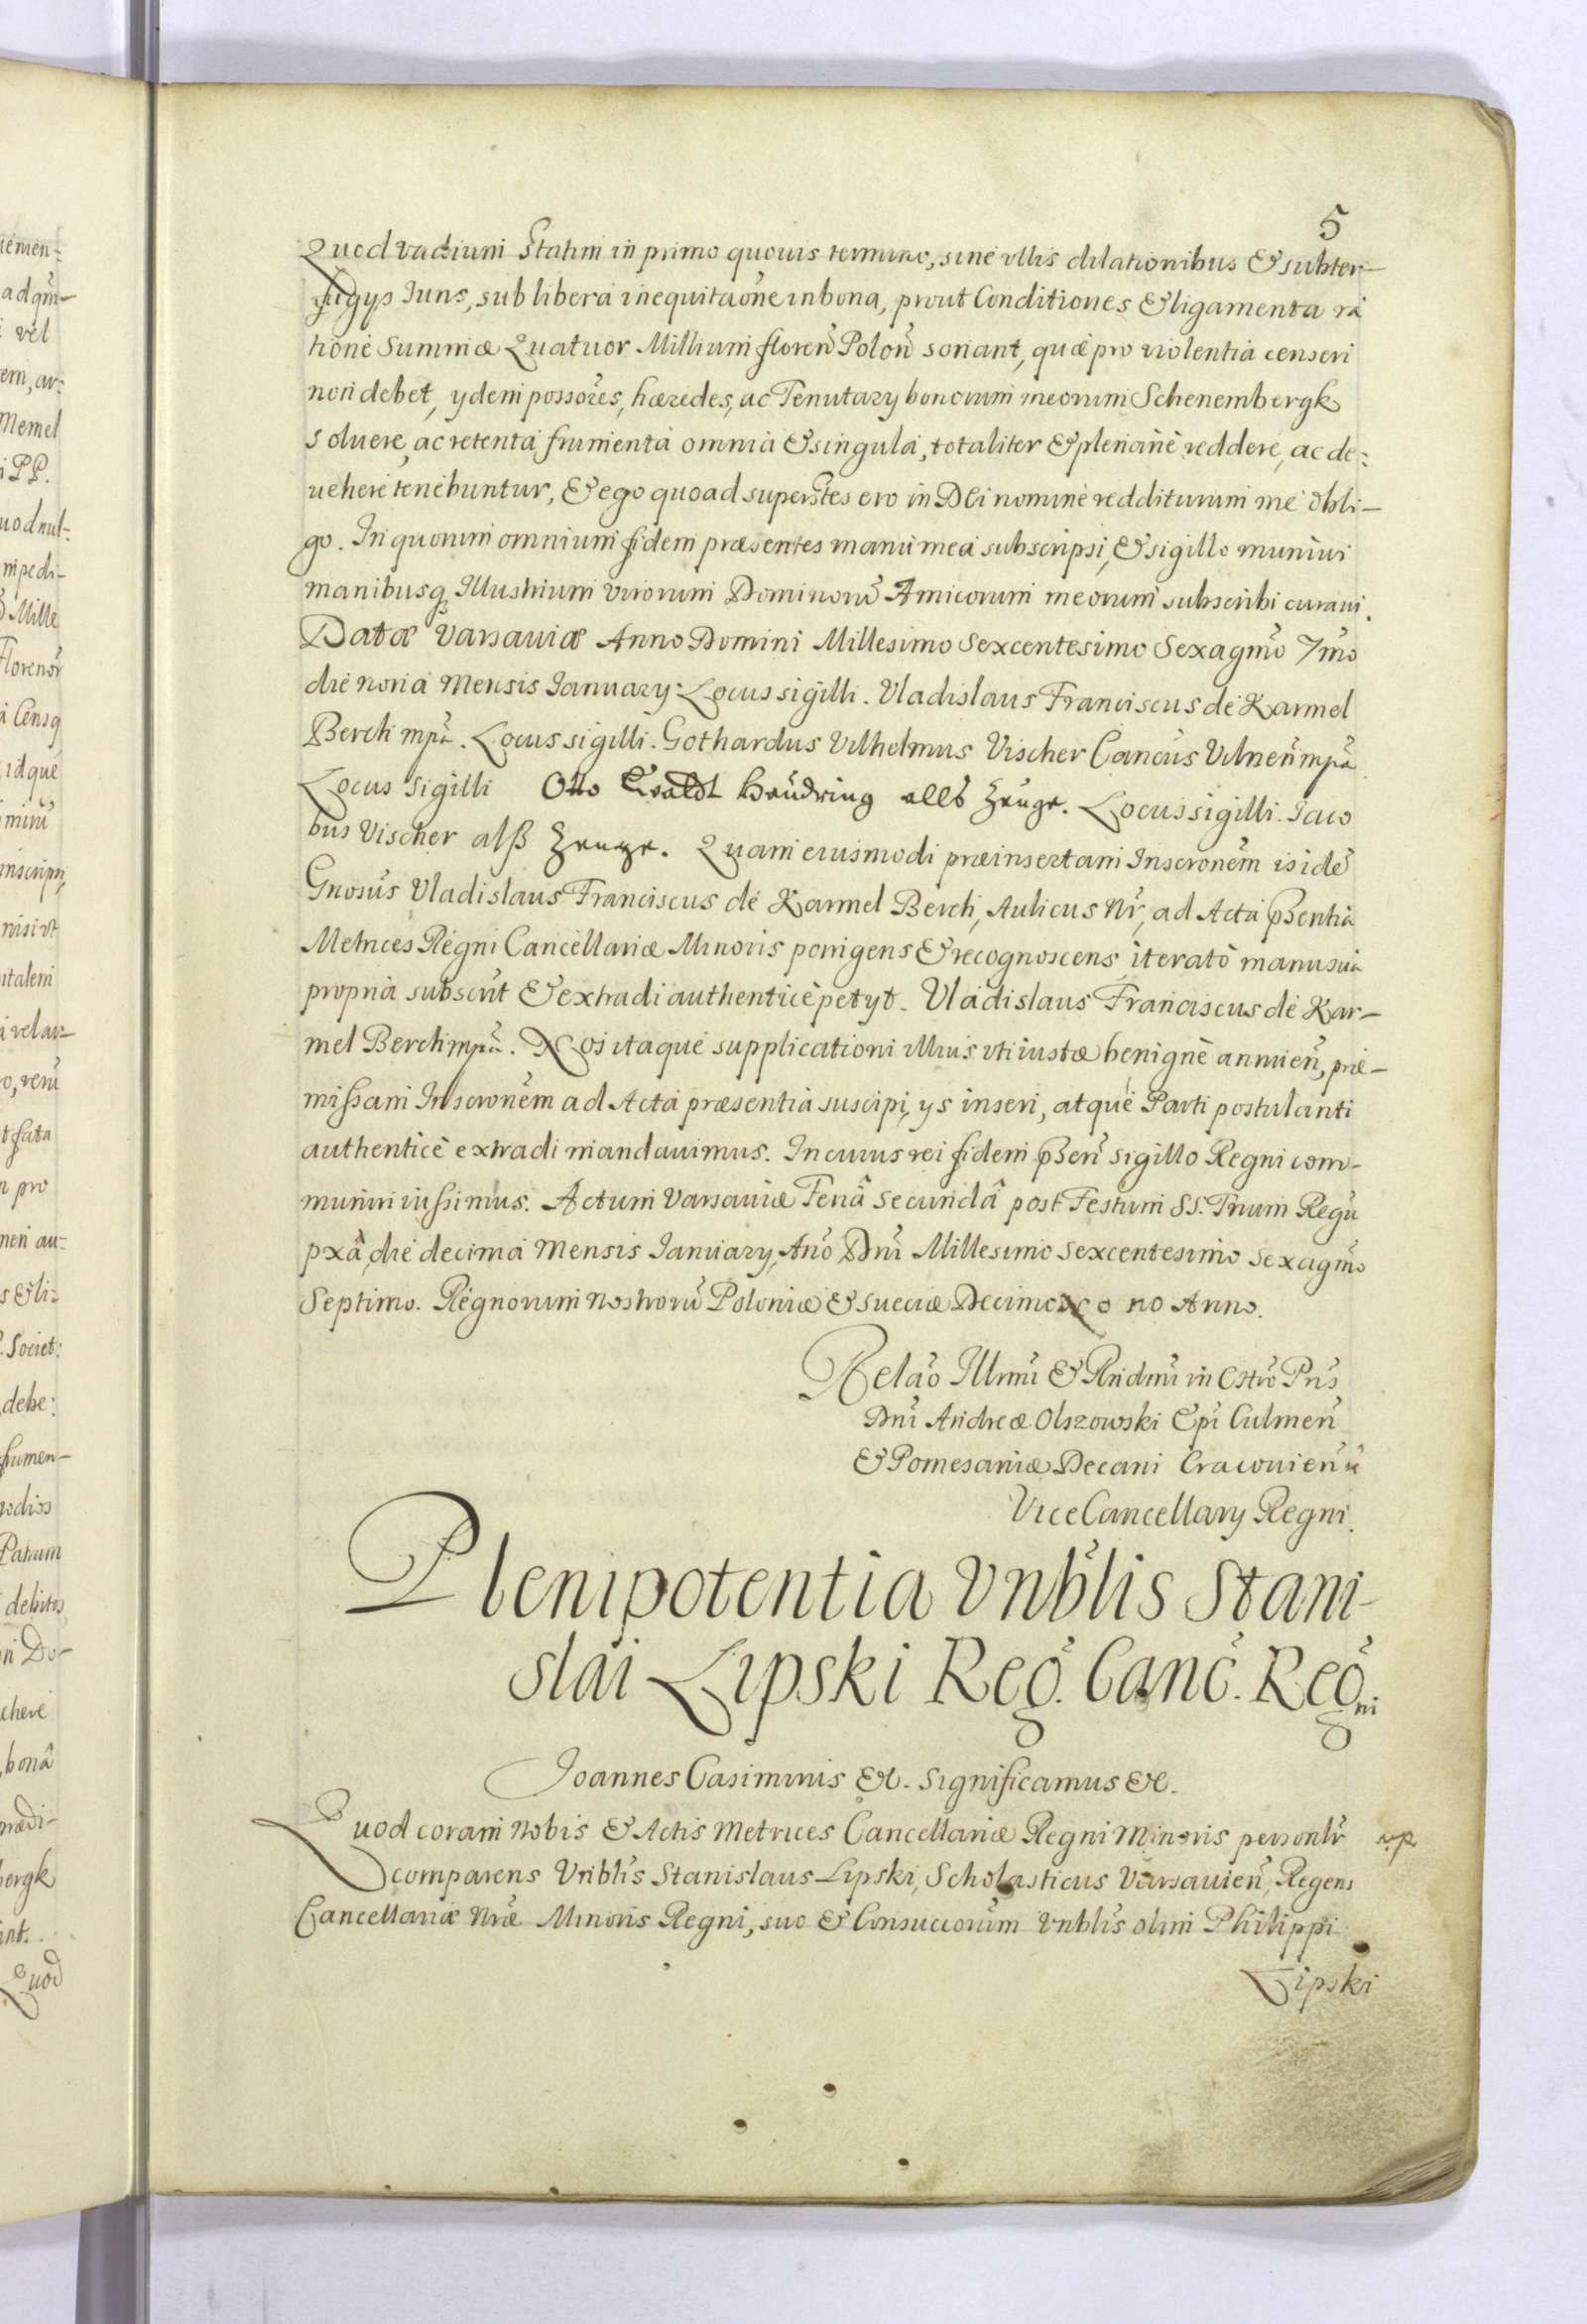 5
Quod vadium statim in primo quouis termino, sine vllis dilationibus & subter-
fugys Iuris, sub libera inequitaõne in bona, prout Conditiones & ligamenta ra
tione Summæ Quatuor Millium floreñ Poloñ sonant, quæ pro violentia censeri
non debet, ydem possores, hæredes, ac Tenutary bonorum meorum Schenembergk
soluere, ac retenta frumenta omnia & singula, totaliter & plenariè reddere, ac de:
uehere tenebuntur, & ego quoad superstes ero in Dei nomine redditurum me obli-
go. In quorum omnium fidem præsentes manu mea subscripsi, & sigillo muniui
manibusq Illustrium virorum Dominorũ Amicorum meorum subscribi curaui.
Datæ Varsauiæ Anno Domini Millesimo Sexcentesimo Sexagmõ 7mo
die nona Mensis Ianuary. Locus sigilli. Vladislaus Franciscus de Karmel
Berch mpã. Locus sigilli. Gothardus Vilhelmus Vischer Cancũs Vilneñ mpã
Locus sigilli Otto Ewaldt Heüdring allß Zeuge. Locus sigilli. Iaco
bus Vischer alß Zeuge. Quam eiusmodi præinsertam Inscronẽm is idẽ
Gnosũs Vladislaus Franciscus de Karmel Berch, Aulicus Nr̃, ad Acta pñsentia
Metrices Regni Cancellariæ Minoris porrigens & recognoscens, iteratò manu sua
propria subscrĩt & extradi authenticè petyt. Vladislaus Franciscus de Kar-
mel Berch mpã. Nos itaque supplicationi illius vti iustæ benignè annueñ, præ-
missam Inscronẽm ad Acta præsentia suscipi, ys inseri, atque Parti postulanti
authenticè extradi mandauimus. In cuius rei fidem pñseñ sigillo Regni com-
muniri iussimus. Actum Varsauiæ Feriâ secundâ post Festum SS. Trium Regũ
pxâ, die decima Mensis Ianuary, Año Dñi Millesimo sexcentesimo sexagmõ
Septimo. Regnorum nostrorũ Poloniæ & Sueciæ Decimo no no Anno.
Relaõ Illmĩ & Rndmĩ in Chrõ Prĩs
Dñi Andreæ Olszowski Epĩ Culmeñ
& Pomesaniæ Decani Cracouieñ
Vice Cancellary Regni.
Plenipotentia Vnblĩs Stani-
slai Lipski Reg̃. Canc̃. Reg̃ni
Ioannes Casimirus &c. Significamus &c.
Quod coram Nobis & Actis Metrices Cancellariæ Regni Minoris personlr̃
comparens Vnblĩs Stanislaus Lipski, Scholasticus Varsauieñ, Regens
Cancellariæ Nr̃æ Minoris Regni, suo & Consuccorũm Vnblĩs olim Philippi
Lipski